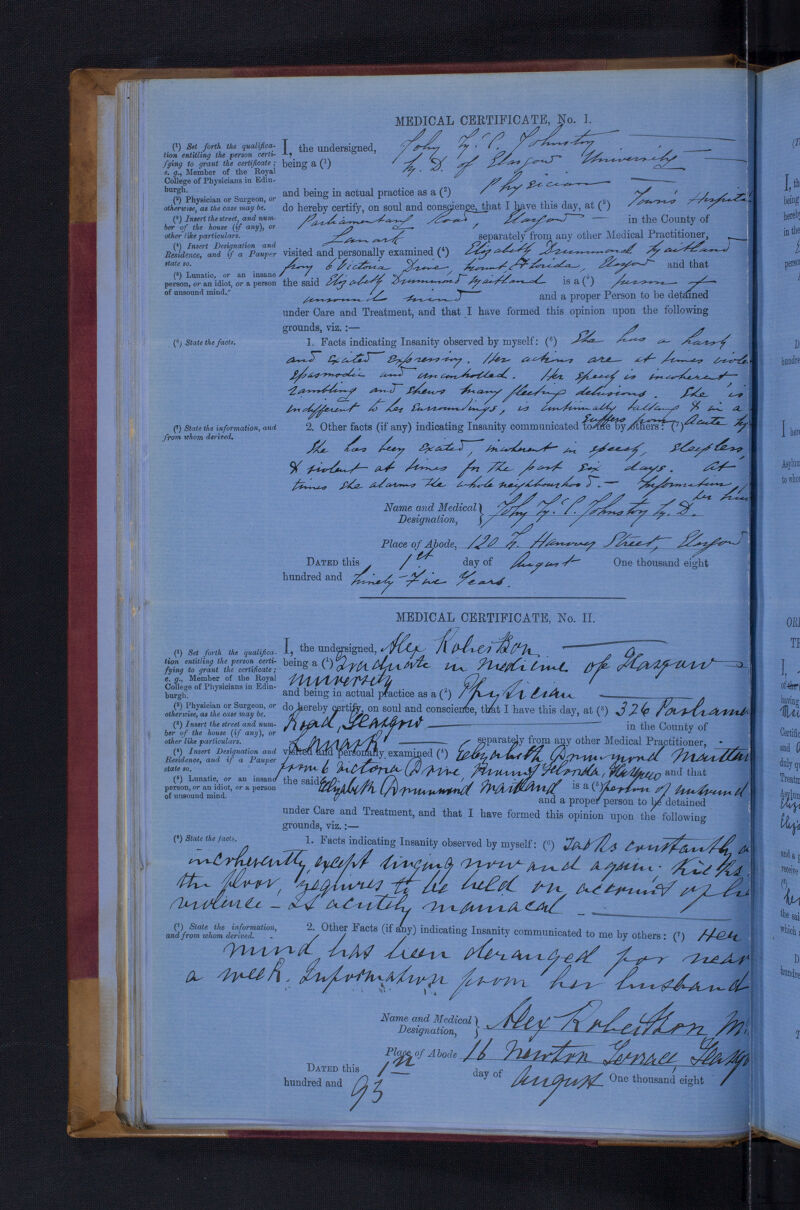 MEDICAL CERTIFICATE, No. I.
(¹) Set forth the qualifica-
tion entitling the person certi-
fying to grant the certificate;
e. g., Member of the Royal
College of Physicians in Edin-
burgh.
(²) Physician or Surgeon, or
otherwise, as the case may be.
(³) Insert the street, and num-
ber of the house (if any), or
other like particulars.
(⁴) Insert Designation and
Residence, and if a Pauper
state so.
(⁵) Lunatic, or an insane
person, or an idiot, or a person
of unsound mind."
I, the undersigned, John Johnston
being a (¹) M. D. of Glasgow University
and being in actual practice as a (²) Physician
do hereby certify, on soul and conscience, that I have this day, at (³) Town's Hospital
Parliamentary Road, Glasgow - in the County of
Lanark separately from any other Medical Practitioner,
visited and personally examined (⁴) Elizabeth Drummond Maitland
from 6 Victoria Drive, Mount Florida, Glasgow and that
the said Elizabeth Drummond Maitland is a (⁵) person of
unsound mind and a proper Person to be detained
under Care and Treatment, and that I have formed this opinion upon the following
grounds, viz. :—
(⁶) State the facts.
1. Facts indicating Insanity observed by myself: (⁶) She has a harsh
and excited expression. Her actions are at times viole
spasmodic and uncontrolled. Her speech is incoherent
rambling and shews many fleeting delusions. She is
indifferent to her surroundings, is continually talking & in a
suffers from Acute
(⁷) State the information, and
from whom derived.
2. Other facts (if any) indicating Insanity communicated to me by others: (⁷)
She has been excited, incoherent in speech, sleepless
& violent at times for the past six days. At
times she alarms the whole neighbourhood. - Information
her
Name and Medical Designation, John Johnston M. D.
Place of Abode, 120 N. Hanover Street, Glasgow
DATED this 1st day of August One thousand eight
hundred and Ninety-Five Years.
MEDICAL CERTIFICATE, No. II.
(¹) Set forth the qualifica-
tion entitling the person certi-
fying to grant the certificate;
e. g., Member of the Royal
College of Physicians in Edin-
burgh.
(²) Physician or Surgeon, or
otherwise, as the case may be.
(³) Insert the street and num-
ber of the house (if any), or
other like particulars.
(⁴) Insert Designation and
Residence, and if a Pauper
state so.
(⁵) Lunatic, or an insane
person, or an idiot, or a person
of unsound mind.
I, the undersigned, Alex Robertson
being a (¹) Graduate in Medicine of Glasgow
University
and being in actual practice as a (²) Physician
do hereby certify, on soul and conscience, that I have this day, at (³) 326 Parliame
Road, Glasgow in the County of
Lanark separately from any other Medical Practitioner,
visited and personally examined (⁴) Elizabeth Drummond Maitlan
from 6 Victoria Drive, Mount Florida, Glasgow and that
the said Elizabeth Drummond Maitland is a (⁵) person of unsound
and a proper person to be detained
under Care and Treatment, and that I have formed this opinion upon the following
grounds, viz. :—
(⁶) State the facts.
1. Facts indicating Insanity observed by myself: (⁶) Talks constantly
incoherently, except singing now and again. Kicks
the floor, requires to be held on account of he
violence - Is acutely maniacal -
(⁷) State the information,
and from whom derived.
2. Other Facts (if any) indicating Insanity communicated to me by others: (⁷) Her
mind has been deranged for near
a week. Information from her husband
Name and Medical Designation, Alex Robertson M.
Place of Abode 16 Newton Terrace, Glasgo
DATED this 1st day of August One thousand eight
hundred and 95